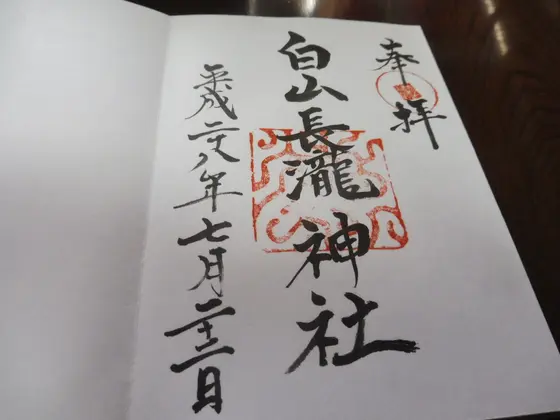 奉拝
白山長瀧神社
平成二十八年七月二十二日